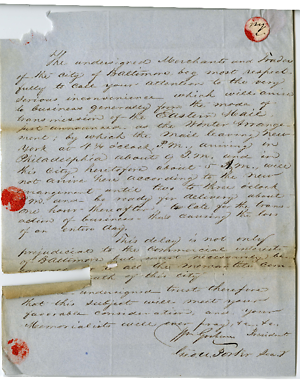 Sir
The undersigned Merchants and Traders
of the city of Baltimore beg most respect
fully to call your attention to the very
serious inconvenience which will arise
to business generally from the mode of
transmission of the Eastern Mail
just announced as the Winter Arrange
ment, by which the Mail leaving New
York at 4½ oclock P.M., arriving in
Philadelphia about 9 P.M. and in
this City heretofore about A.M., will
not arrive here according to the New
arrangement until two to three oclock
P.M. and be ready for delivery about
one hour thereafter too late for the trans
action of business thus causing the loss
of an entire day.
This delay is not only
prejudicial to the commercial interests
of Baltimore but must necessarily be
all the mercantile com
of this city
undersigned trust therefore
that this subject will meet your
favorable consideration and your
Memorialists will ever pray &c &c
Wm Graham President
Sect